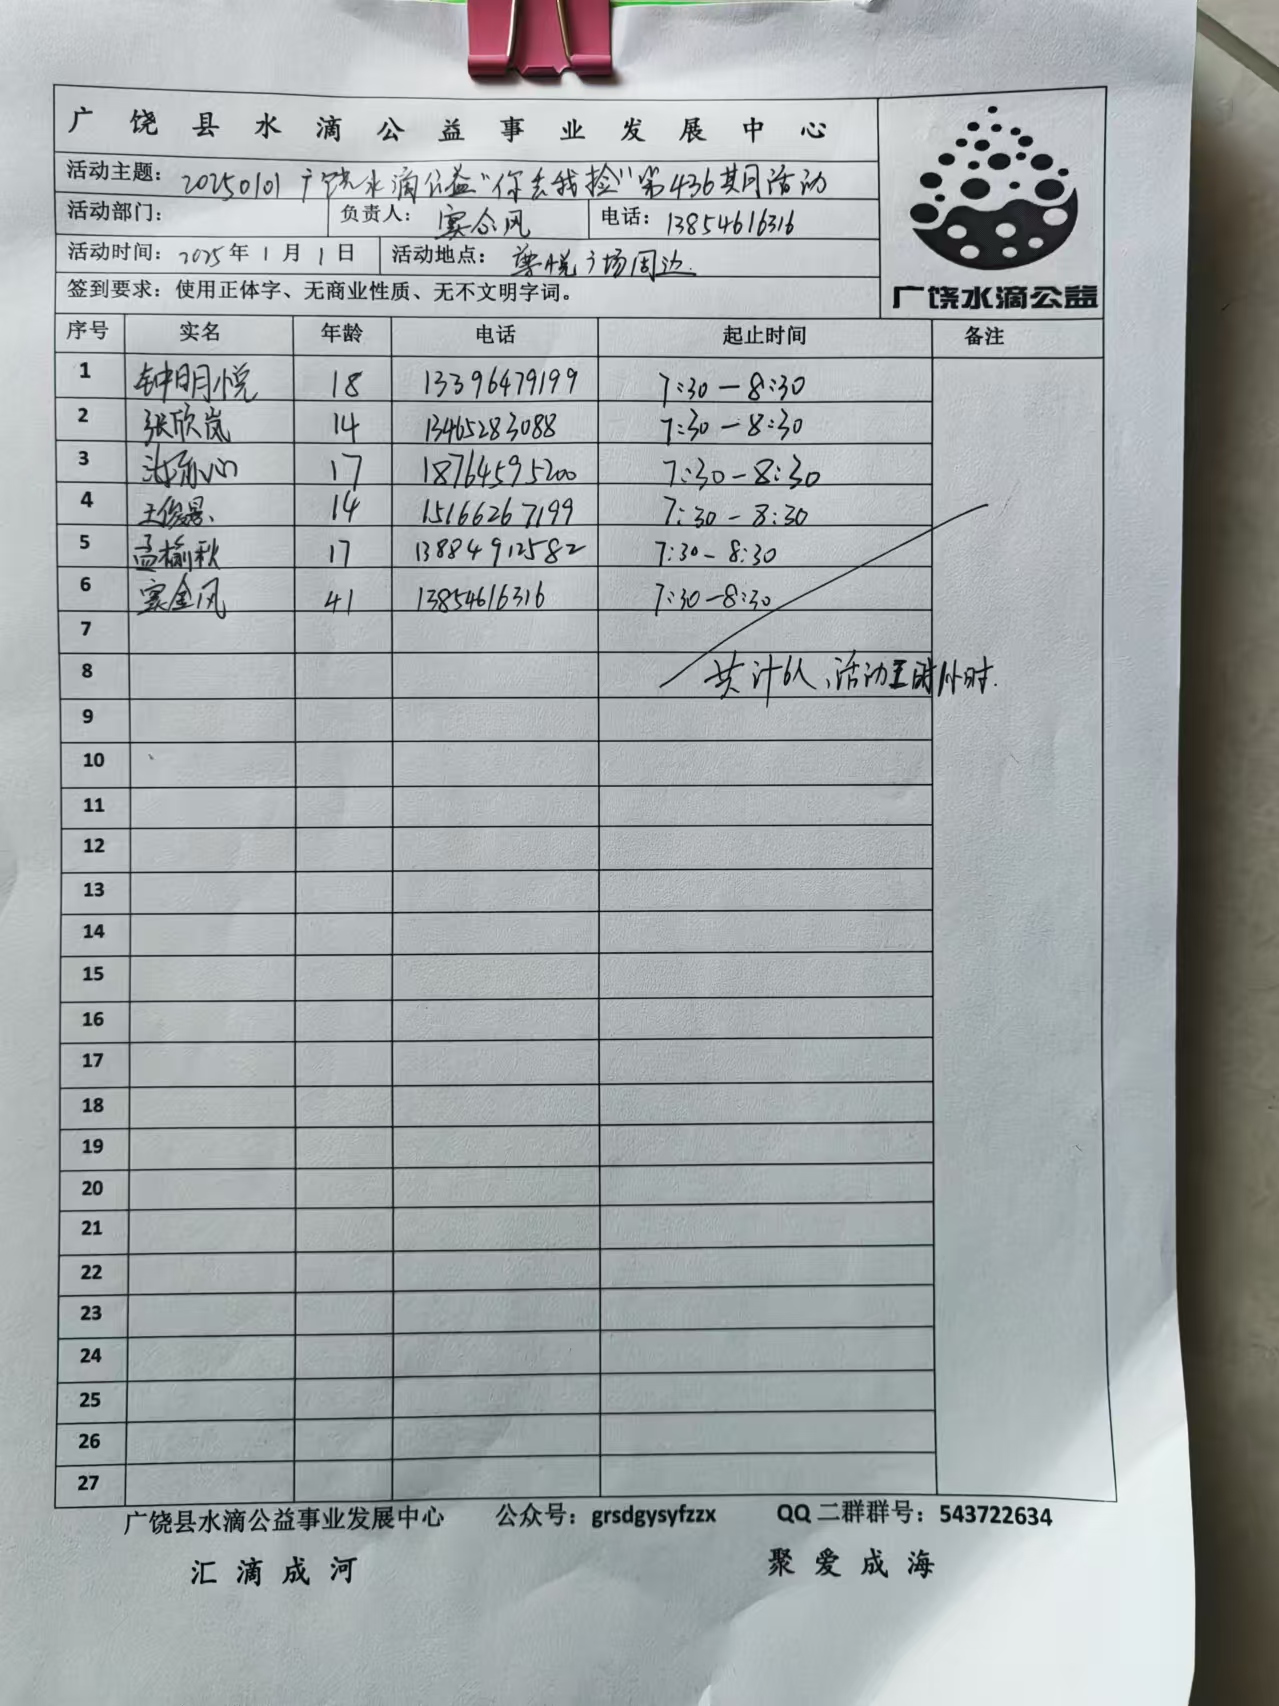 广饶县水滴公益事业发展中心
活动主题: 20250101广饶水滴公益"你丢我捡"第436期活动
活动部门: 负责人: 金风 电话: 13854616316
活动时间: 2025年1月1日 活动地点: 尊悦广场周边
签到要求: 使用正体字、无商业性质、无不文明字词。
广饶水滴公益
序号 实名 年龄 电话 起止时间 备注
1 钟明悦 18 13396479199 7:30—8:30
2 张欣岚 14 13465283088 7:30—8:30
3 17 18764595200 7:30—8:30
4 王俊 14 15166267199 7:30—8:30
5 孟榆秋 17 13884912582 7:30—8:30
6 金风 41 13854616316 7:30—8:30
7
8 共计6人,活动
9
10
11
12
13
14
15
16
17
18
19
20
21
22
23
24
25
26
27
广饶县水滴公益事业发展中心 公众号: grsdgysyfzzx QQ二群群号: 543722634
汇滴成河 聚爱成海